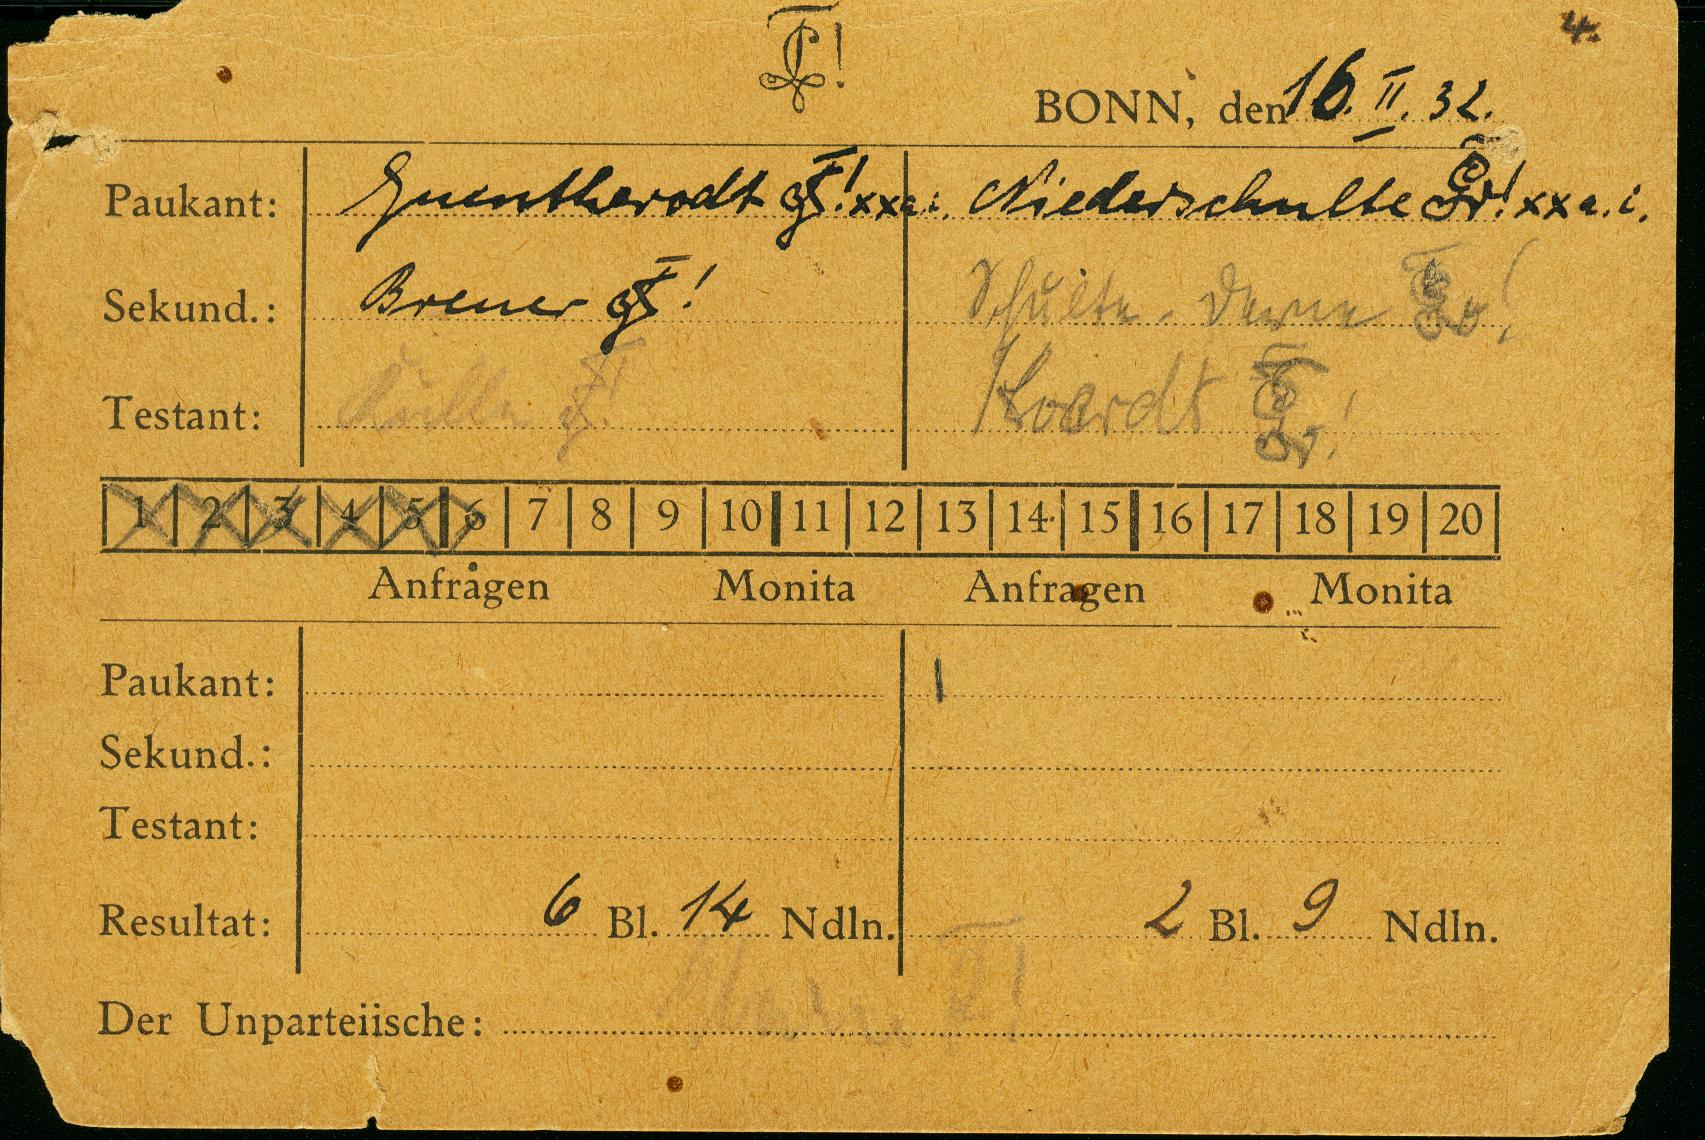 4.
BONN, den 16. II. 32.
Paukant: Guentherodt ! xx a. i. Niederschulte ! xx a. i.
Sekund.: Brener ! Schulte-Derne !
Testant: !
1 2 3 4 5 6 7 8 9 10 11 12 13 14 15 16 17 18 19 20
Anfragen Monita Anfragen Monita
Paukant: I
Sekund.:
Testant:
Resultat: 6 Bl. 14 Ndln. 2 Bl. 9 Ndln.
Der Unparteiische: